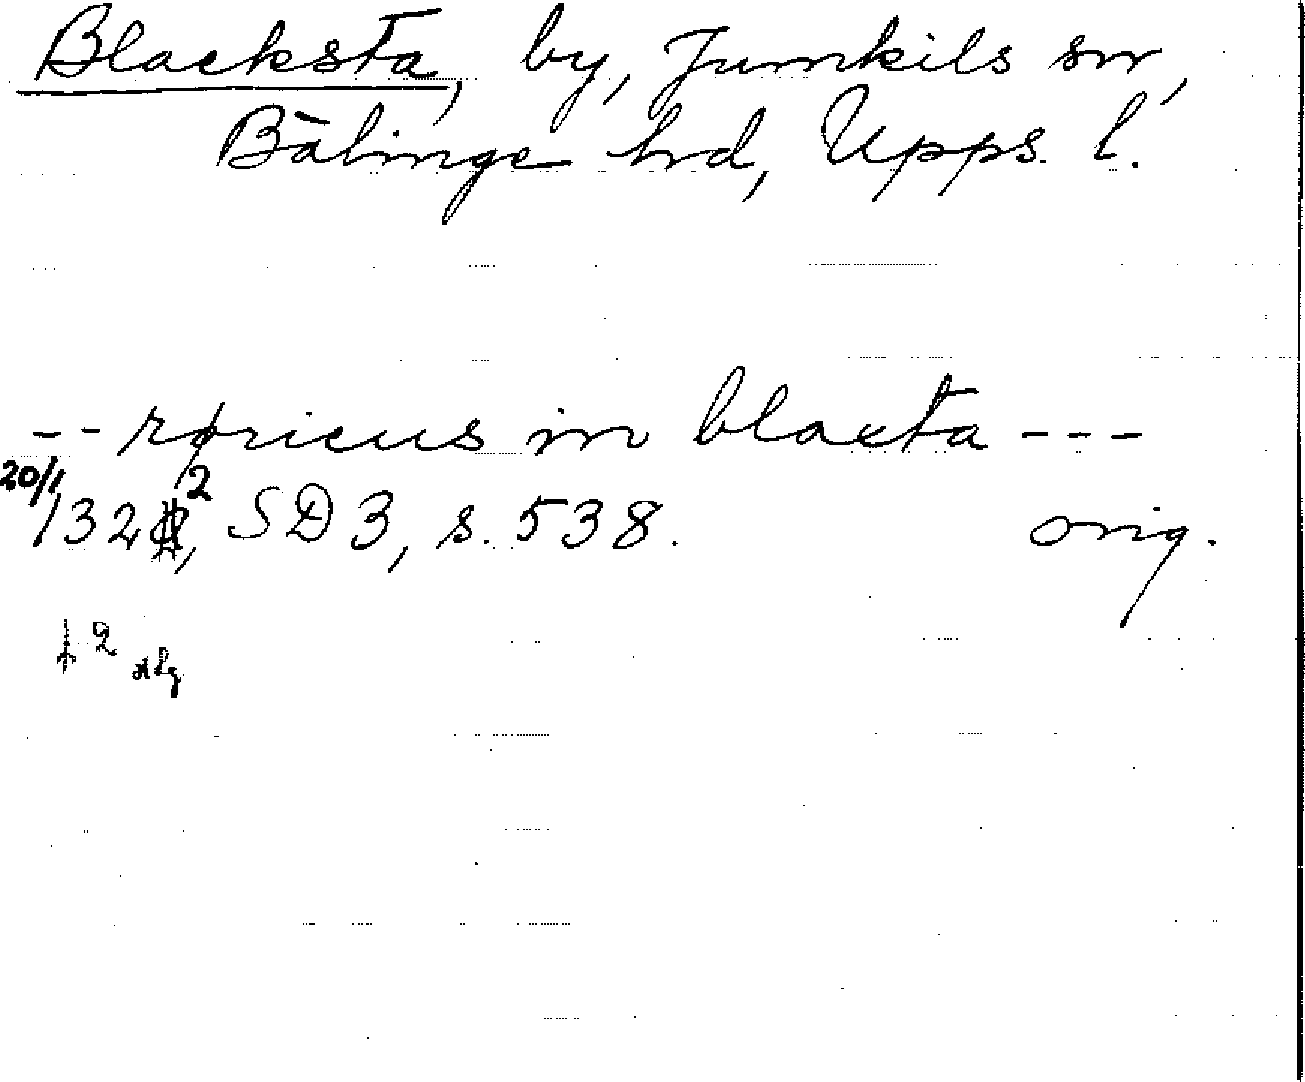 Blacksta, by, Jumkils sn,
Bälinge hd, Upps. l.
-- røricus in blacta ---
20/1 1322, SD 3, s. 538. orig.